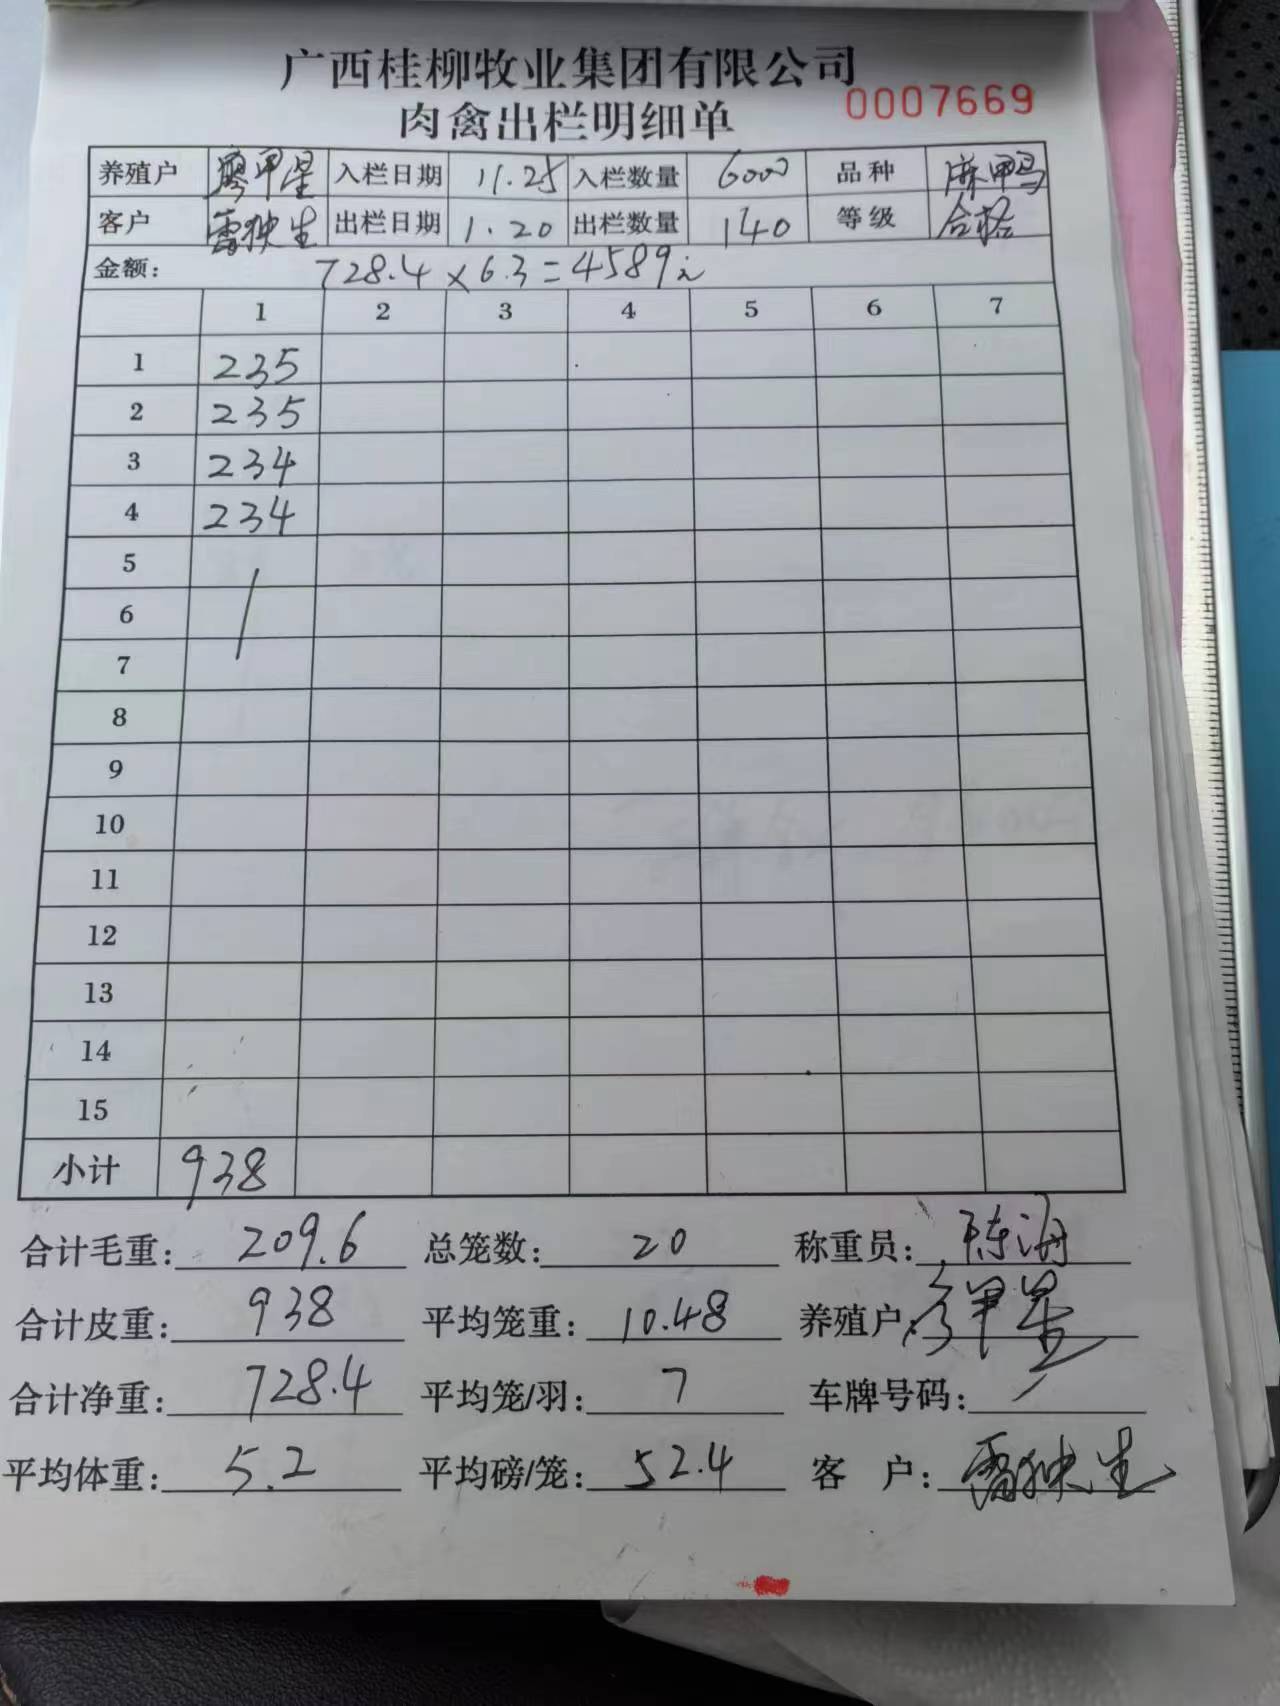 广西桂柳牧业集团有限公司
肉禽出栏明细单 0007669
养殖户 廖甲星 入栏日期 11.25 入栏数量 6000 品种 麻鸭
客户 雷独生 出栏日期 1.20 出栏数量 140 等级 合格
金额: 728.4×6.3=4589元
1 2 3 4 5 6 7
1 235
2 235
3 234
4 234
5
6
7
8
9
10
11
12
13
14
15
小计 938
合计毛重: 209.6 总笼数: 20 称重员: 陈海
合计皮重: 938 平均笼重: 10.48 养殖户: 廖甲星
合计净重: 728.4 平均笼/羽: 7 车牌号码:
平均体重: 5.2 平均磅/笼: 52.4 客 户: 雷独生